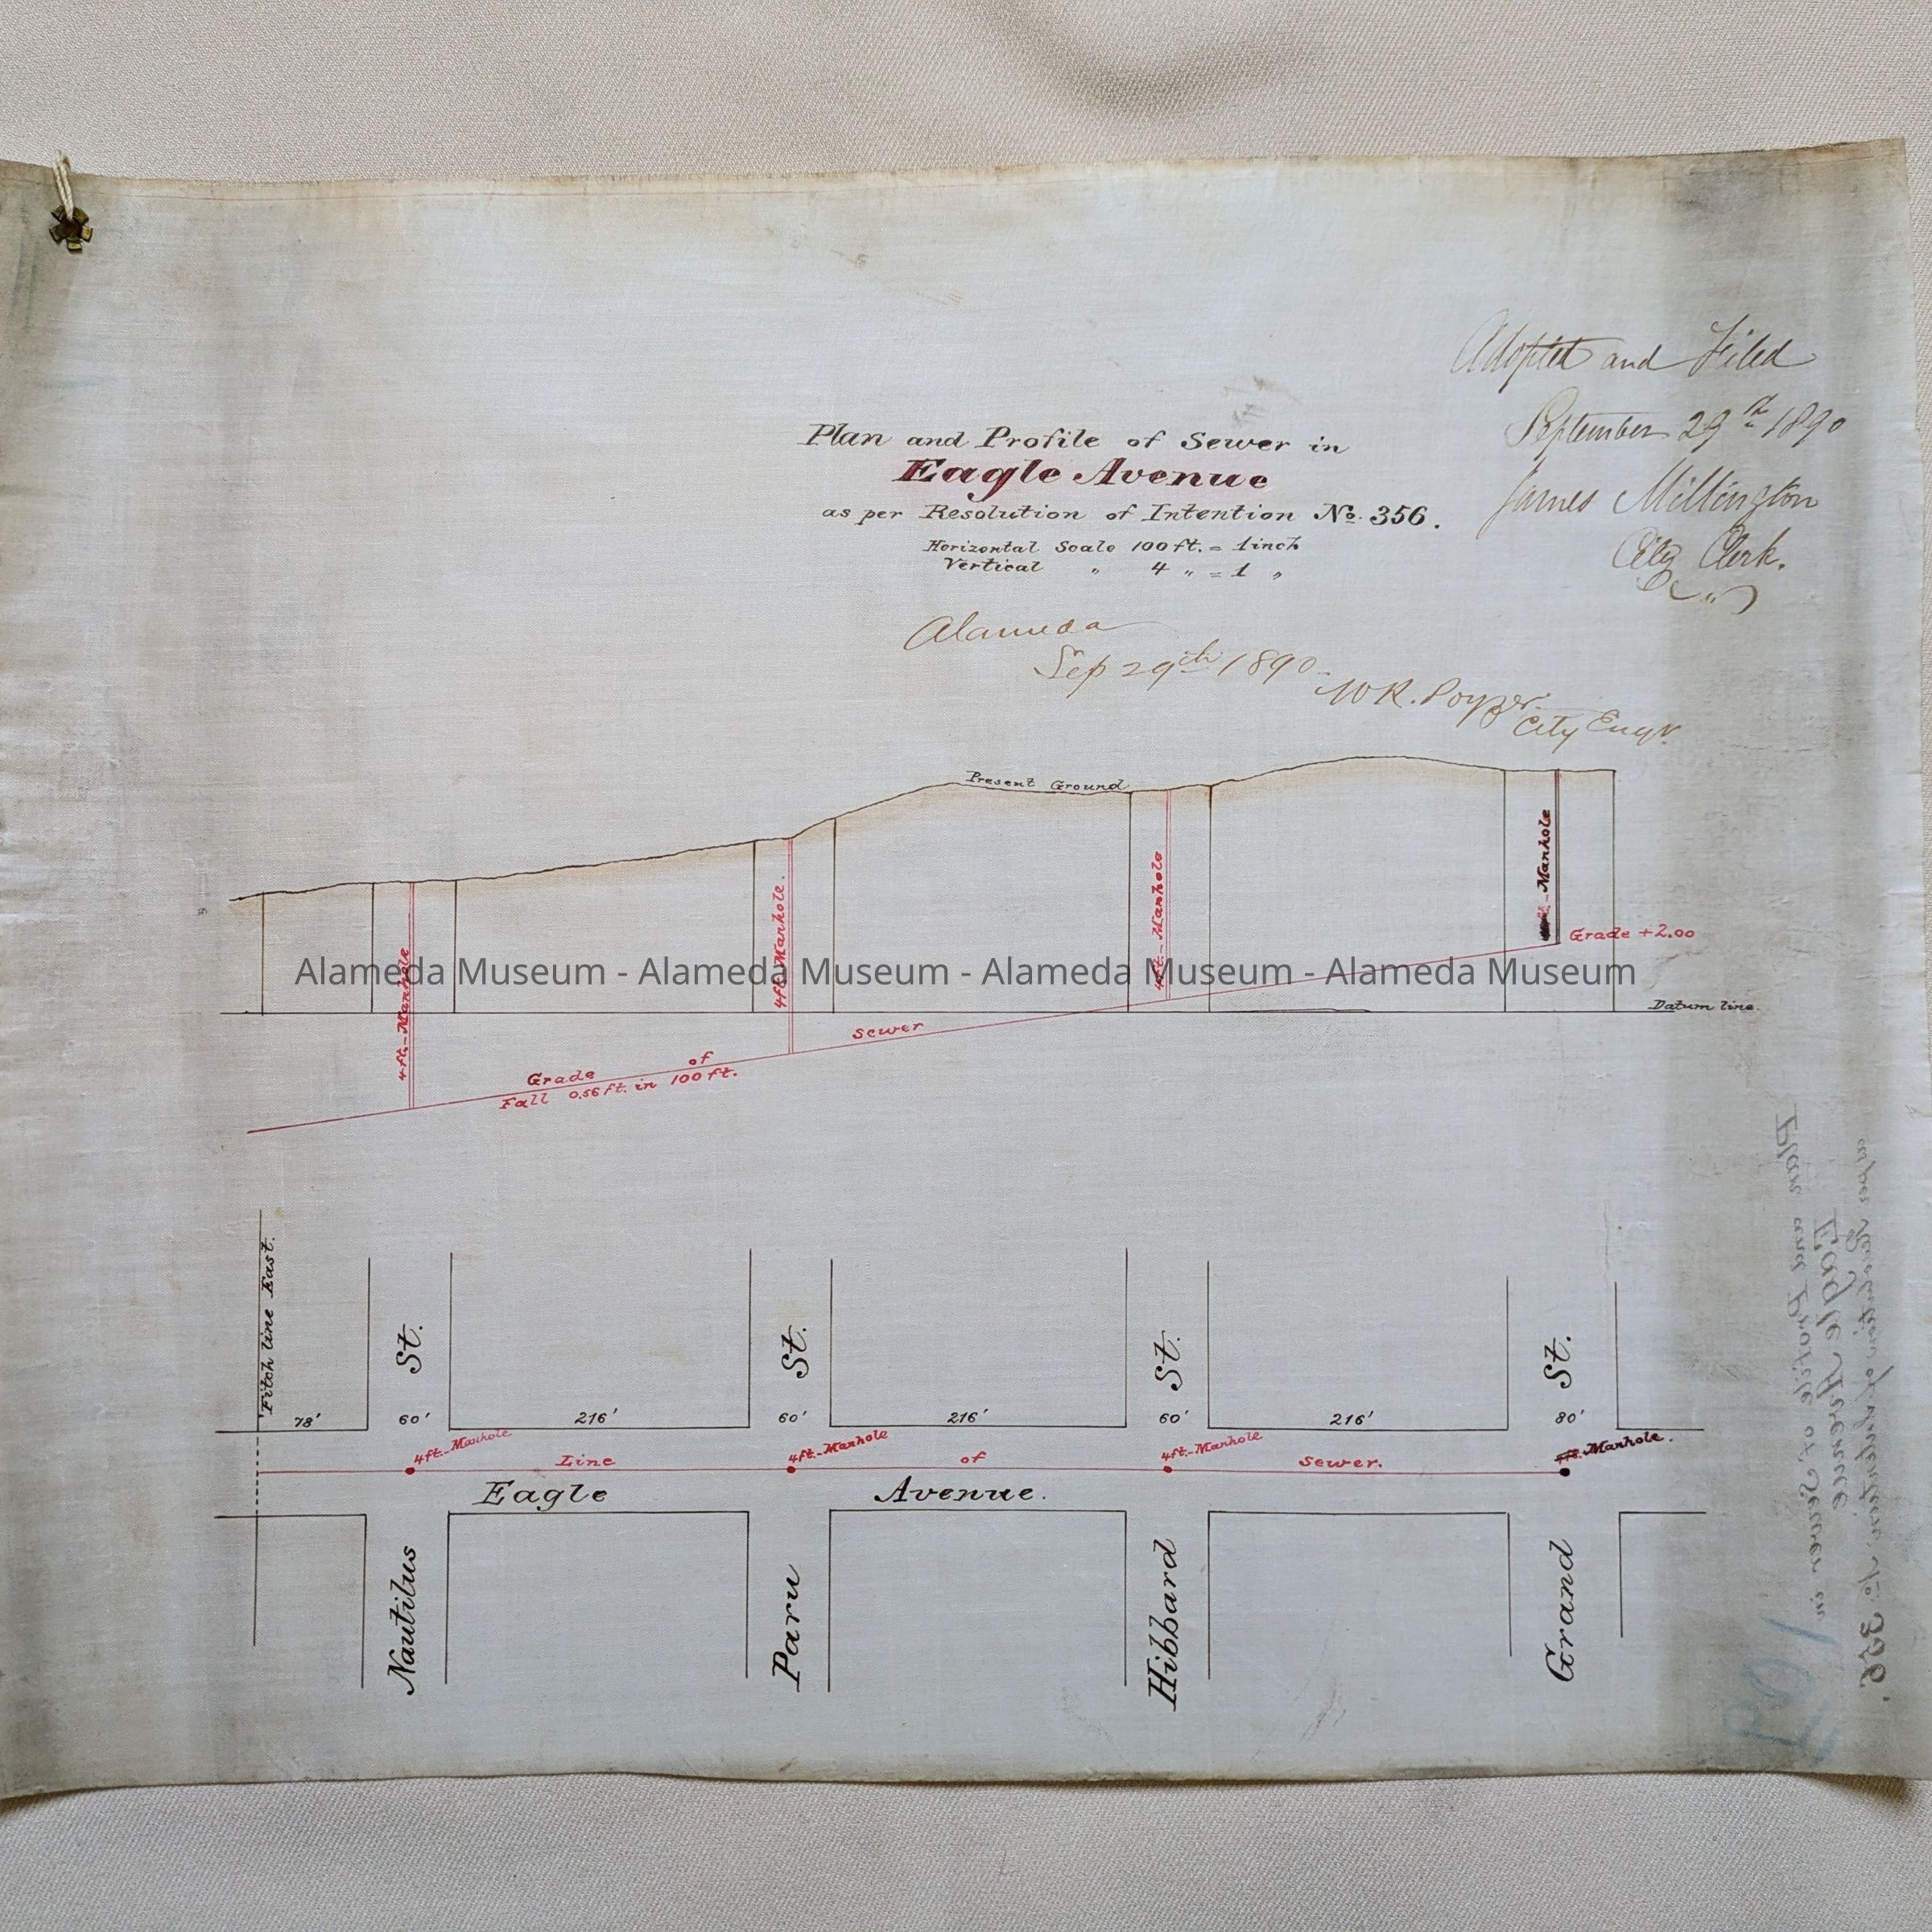 Adopted and Filed
September 29th 1890
James Millington
City Clerk.
Plan and Profile of Sewer in
Eagle Avenue
as per Resolution of Intention No. 356.
Horizontal Scale 100 ft. = 1 inch
Vertical " 4 " = 1 "
Alameda
Sep 29th 1890
W R. Poyzer
City Engr.
Present Ground
4 ft.-Manhole
4 ft. Manhole.
4 ft.- Manhole
Manhole
Grade +2.00
Datum line.
Grade of sewer
Fall 0.56 ft. in 100 ft.
Alameda Museum - Alameda Museum - Alameda Museum - Alameda Museum
Fitch line East.
St. St. St. St.
78' 60' 216' 60' 216' 60' 216' 80'
4 ft.-Manhole 4 ft.-Manhole 4 ft.-Manhole Manhole.
Line of sewer.
Eagle Avenue.
Nautilus Paru Hibbard Grand
Plan and Profile of Sewer in
Eagle Avenue
356.